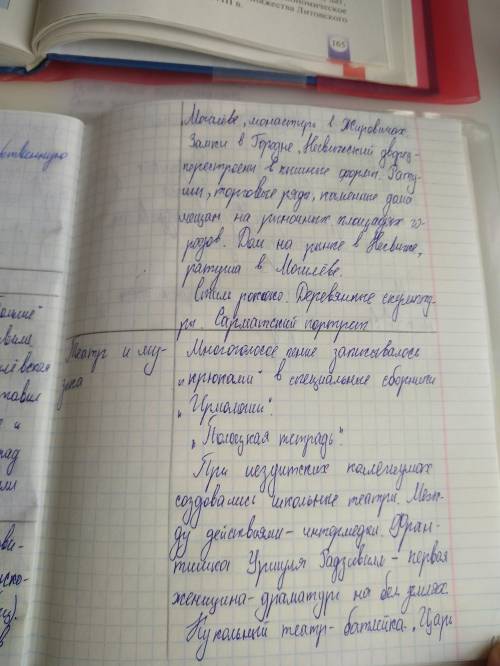 экономическое
княжества Литовского
III в.
165
Могилёве, монастыри в Жировичах.
Замки в Гродне, Несвижский дворец
перестроены в пышные формы. Рату-
ши, торговые ряды, каменные дома
мещан на рыночных площадях го-
родов. Дом на рынке в Несвиже,
ратуша в Могилёве.
Стиль рококо. Деревянные скульпту-
ры. Сарматский портрет
Театр и му-
зыка
Многоголосое пение записывалось
"крюками" в специальные сборники
"Ирмологии".
"Полоцкая тетрадь".
При иезуитских коллегиумах
создавались школьные театры. Меж-
ду действиями - интермедии. Фран-
тишка Уршуля Радзивилл - первая
женщина-драматург на бел. землях
Кукольный театр - батлейка. "Царь